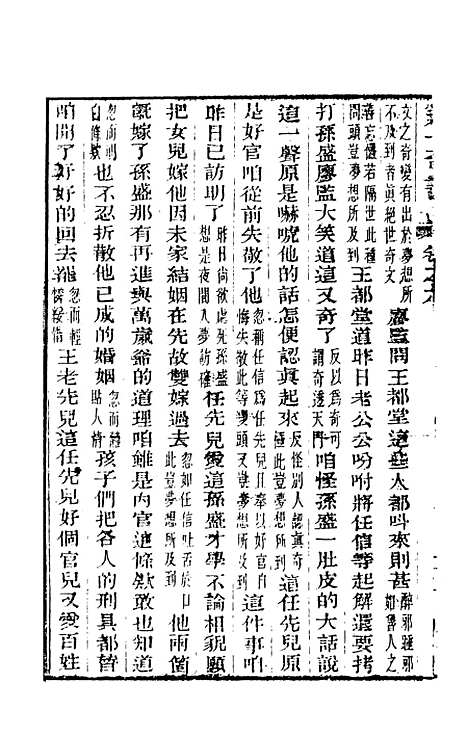 文之奇變有出於夢想所不及到者眞絕世奇文廖監問王都堂道這些人都呌來則甚醉邪種邪如魯人之
落忘儻若隔世此種問頭豈夢想所及到王都堂道昨日老公公吩咐將任信等起解還要拷
打孫盛廖監大笑道這又奇了反以爲奇可謂奇透天門咱怪孫盛一肚皮的大話說
這一聲原是嚇唬他的話怎便認眞起來反怪別人認眞奇極此豈夢想所及到這任先兒原
是好官咱從前失敬了他忽稱任信爲任先兒且奉以好官自悔失敬此等變頭又豈夢想所及到這件事咱
昨日已訪明了昨日尚欲處死孫盛想是夜間入夢訪確任先兒愛這孫盛才學不論相貌願
把女兒嫁他因未家結姻在先故雙嫁過去忽如任信吐舌此豈夢想所及到他兩箇
旣嫁了孫盛那有再進與萬歲爺的道理咱雖是內官這條欵敢也知道
忽而明白條欵也不忍拆散他已成的婚姻忽而體貼人情孩子們把各人的刑具都替
咱開了好好的回去罷忽而輕憐緩惜王老先兒這任先兒好個官兒又愛百姓